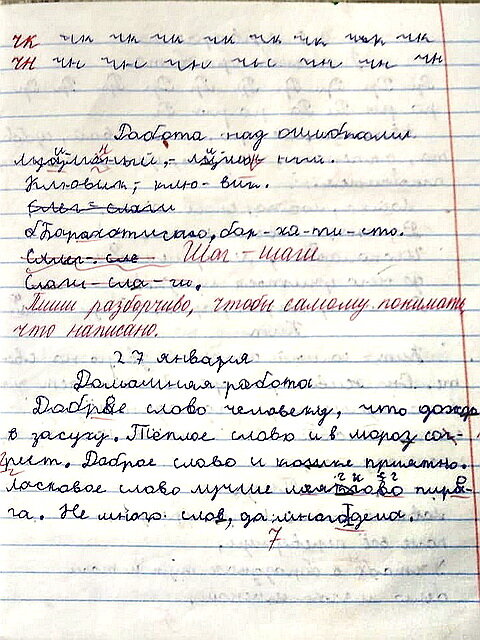 чк чк чк чк чк чк чк чк чк
чн чн чн чн чн чн чн чн
Работа над ошибками.
Ключик; клю-чик.
Бархатисто, бар-ха-ти-сто.
Шаг - шаги
Пиши разборчиво, чтобы самому понимать,
что написано.
27 января
Домашняя работа
Доброе слово человеку, что дождь
в засуху. Тёплое слово и в мороз сог-
реет. Доброе слово и кошке приятно.
Ласковое слово лучше мягкого пиро-
га. Не много слов, да много дела.
7